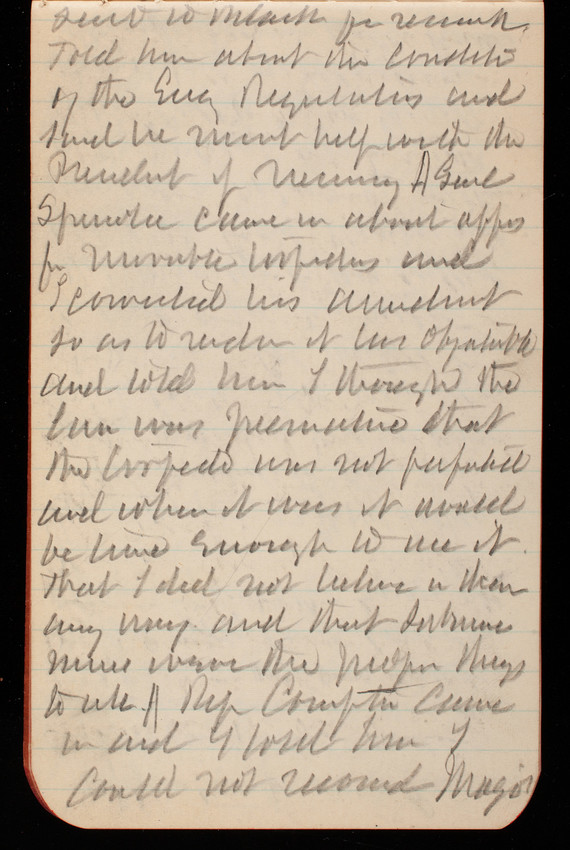 send to Black for remark.
Told him about the condition
of the Eng Regulations and
said he must help with the
President of
Spinola came in about appro
for movable torpedoes and
I corrected his amendment
so as to render it less objectionable
and told him I thought the
law was premature that
the torpedo was not perfected
and when it was it would
be time enough to use it.
That I did not believe in them
any way and that submarine
mines were the proper things
to use. Rep Compton came
in and I told him I
could not recomd Major